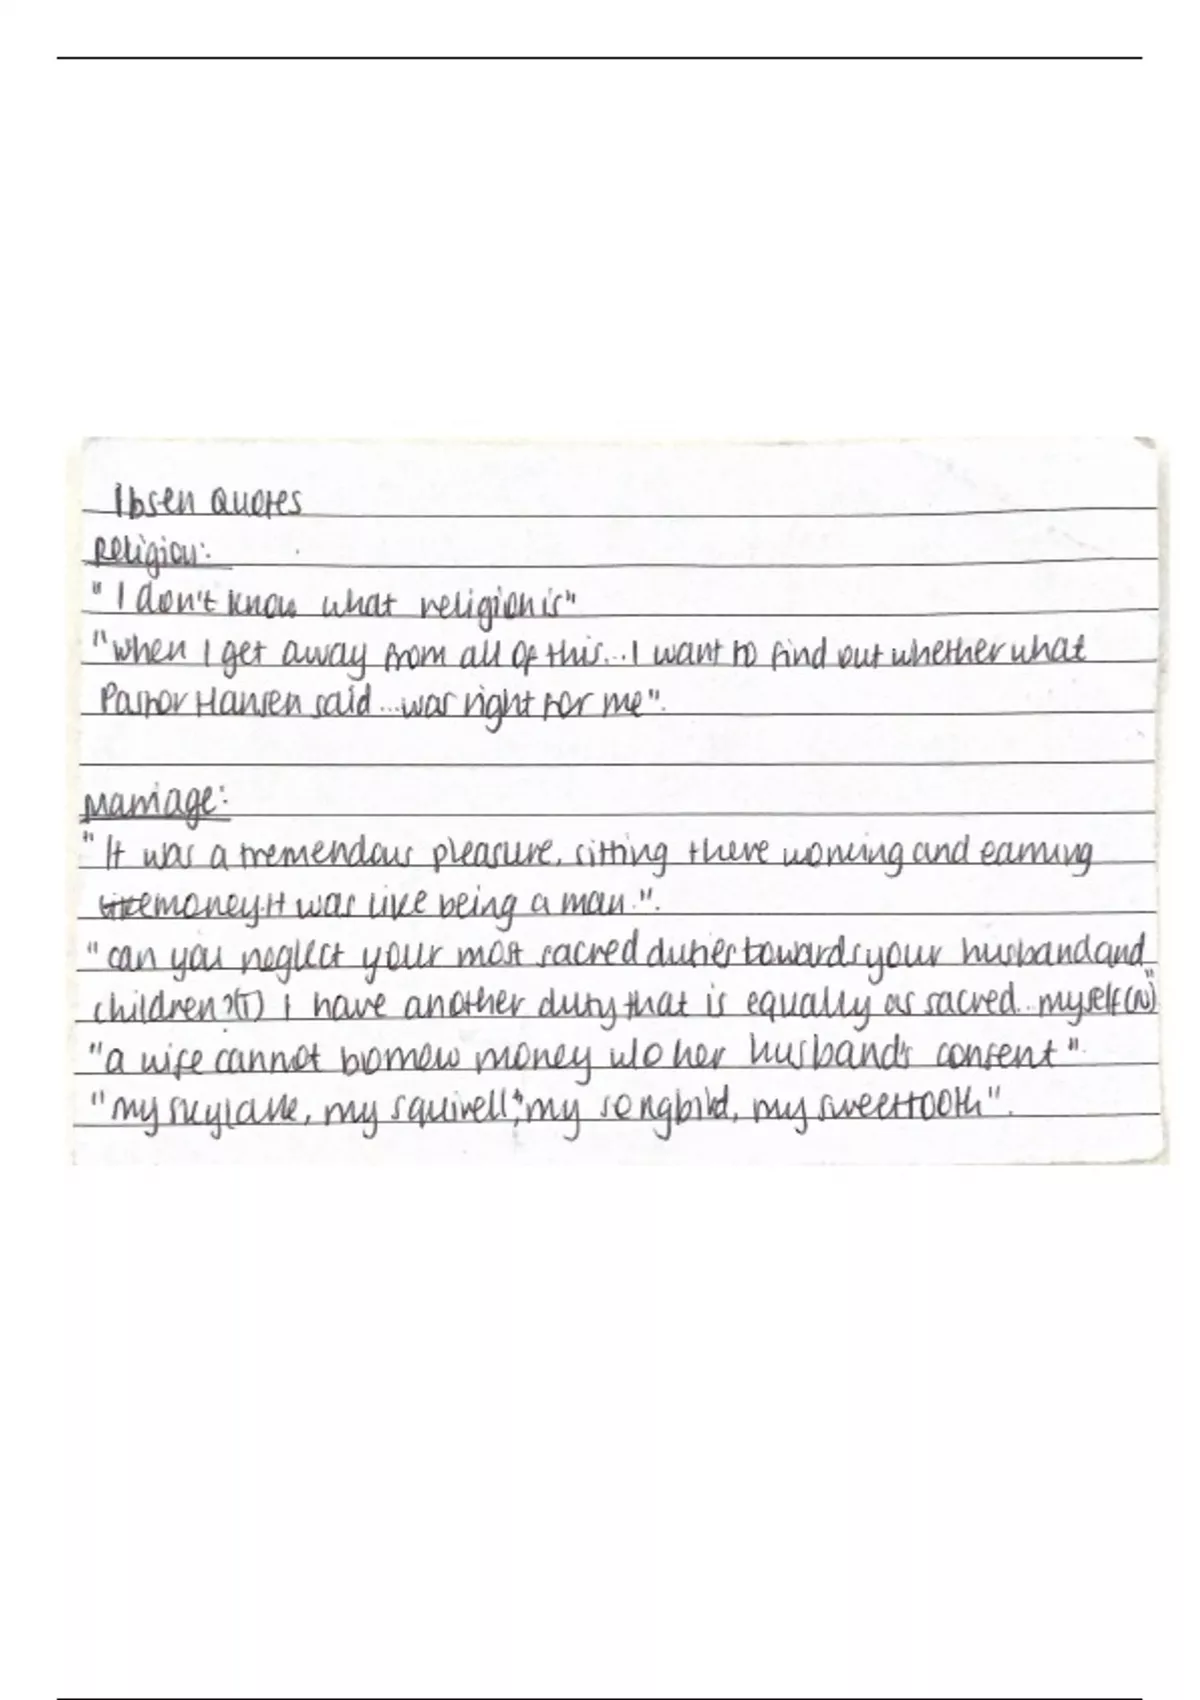 Ibsen Quotes
Religion:
"I don't know what religion is"
"when I get away from all of this...I want to find out whether what
Pastor Hansen said...was right for me".
Marriage:
"It was a tremendous pleasure, sitting there working and earning
like money.It was like being a man.".
"can you neglect your most sacred duties towards your husband and
children?(T) I have another duty that is equally as sacred...myself(N)"
"a wife cannot borrow money w/o her husband's consent".
"my skylark, my squirell","my songbird, my sweettooth".